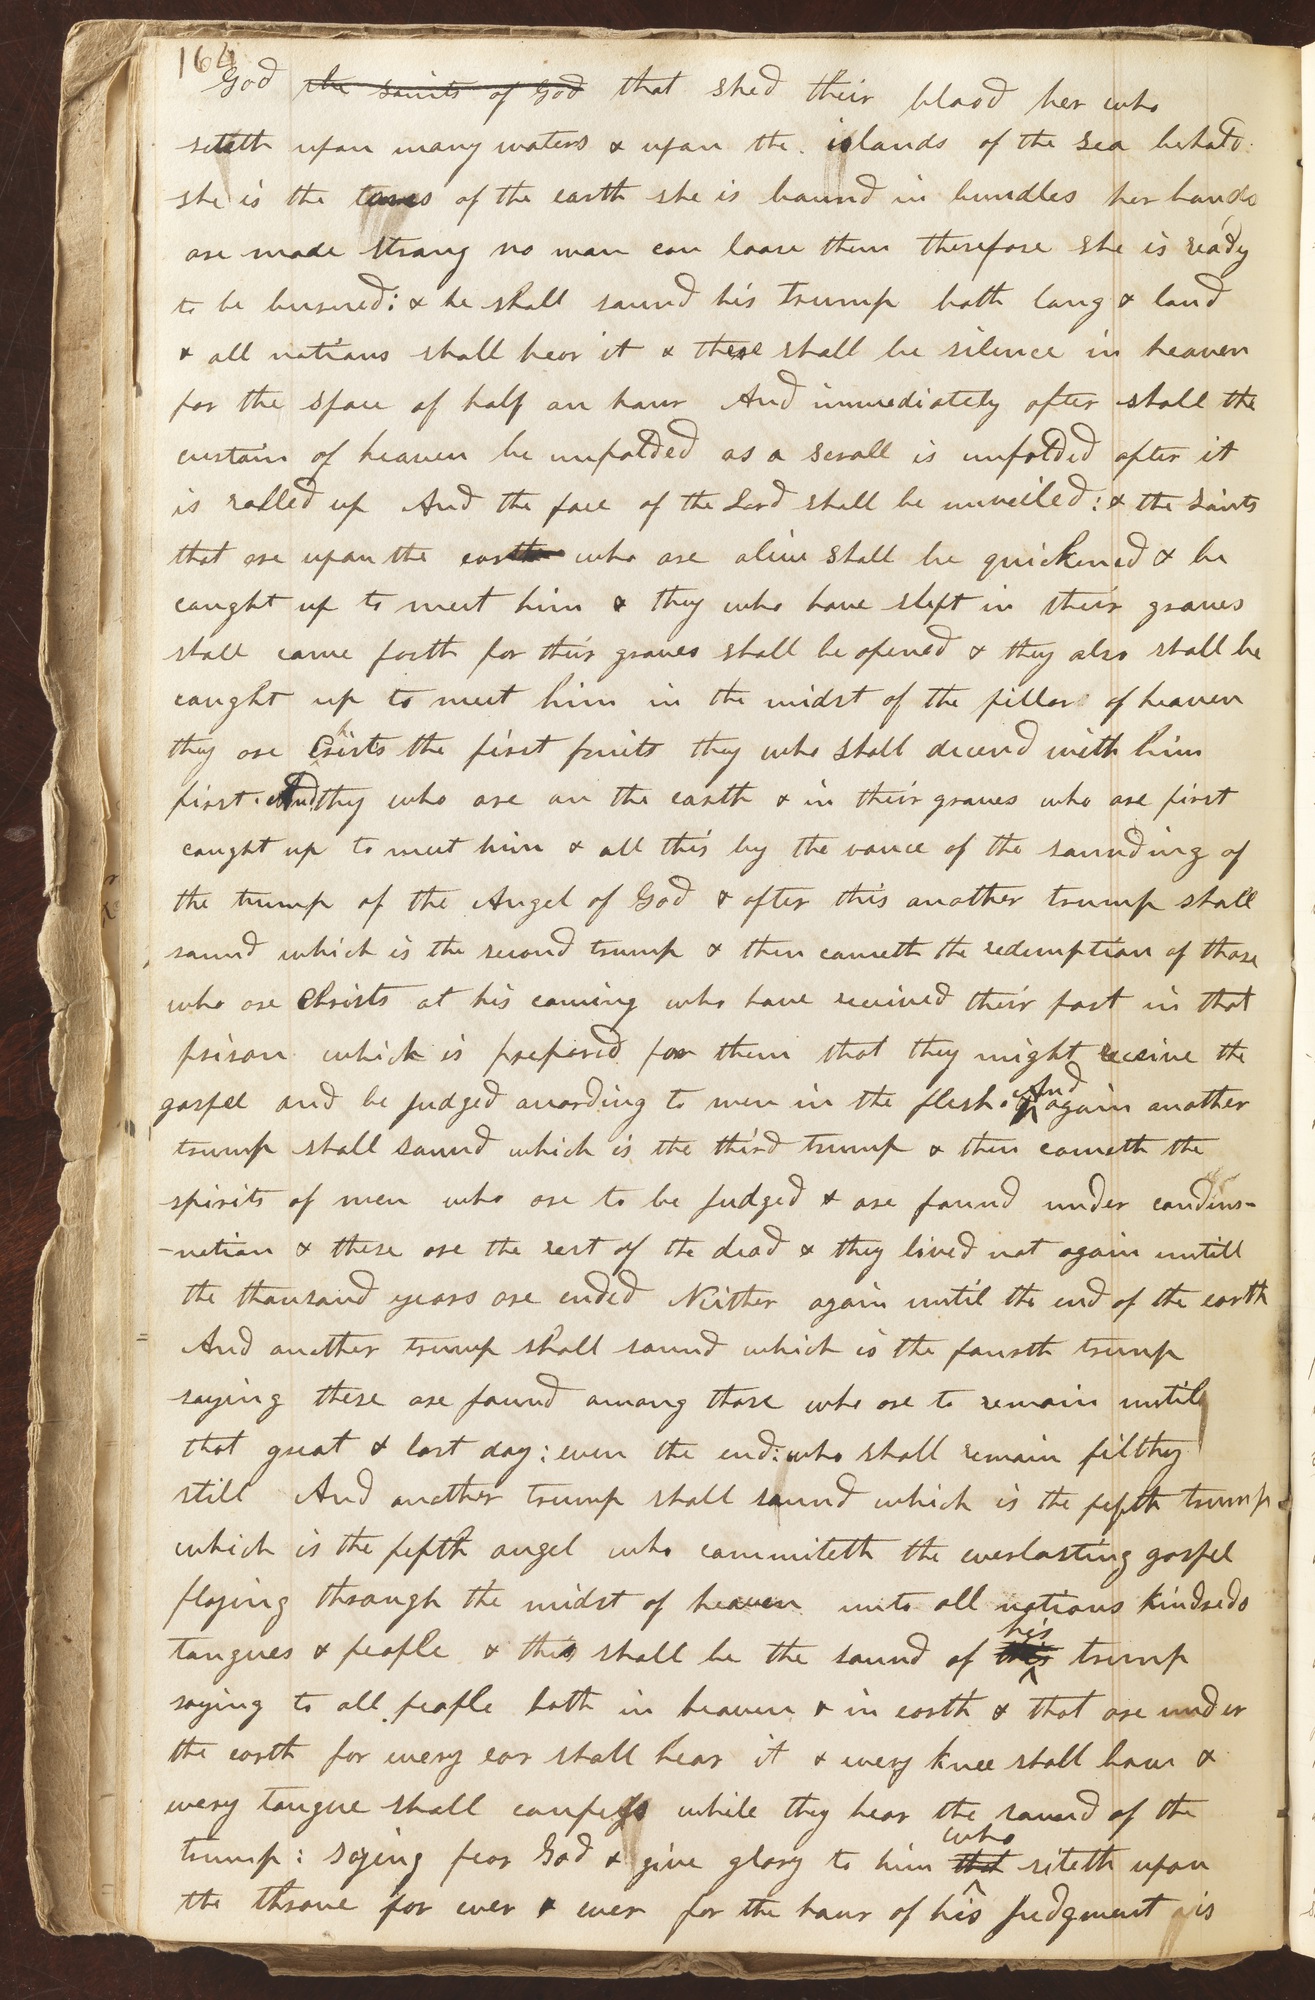 164
God the saints of God that shed their blood her who
siteth upon many waters & upon the islands of the sea behold
she is the tares of the earth she is bound in bundles her bands
are made strong no man can loose them therefore she is ready
to be burned: & he shall sound his trump both long & loud
& all nations shall hear it & there shall be silence in heaven
for the space of half an hour And immediately after shall the
curtain of heaven be unfolded as a scroll is unfolded after it
is rolled up And the face of the Lord shall be unveiled: & the saints
that are upon the earth who are alive shall be quickened & be
caught up to meet him & they who have slept in their graves
shall come forth for their graves shall be opened & they also shall be
caught up to meet him in the midst of the pillar of heaven
they are Christs the first fruits they who shall decend with him
first. And they who are on the earth & in their graves who are first
caught up to meet him & all this by the voice of the sounding of
the trump of the Angel of God & after this another trump shall
sound which is the second trump & then cometh the redemption of those
who are Christs at his coming who have received their part in that
prison which is prepared for them that they might receive the
gospel and be judged according to men in the flesh. And again another
trump shall sound which is the third trump & then cometh the
spirits of men who are to be judged & are found under condem-
-nation & these are the rest of the dead & they lived not again untill
the thousand years are ended Neither again until the end of the earth
And another trump shall sound which is the fourth trump
saying these are found among those who are to remain until
that great & last day: even the end: who shall remain filthy
still And another trump shall sound which is the fifth trump
which is the fifth angel who commiteth the everlasting gospel
flying through the midst of heaven unto all nations kindreds
tongues & people & this shall be the sound of this his trump
saying to all people both in heaven & in earth & that are under
the earth for every ear shall hear it & every knee shall bow &
every tongue shall confess while they hear the sound of the
trump: saying fear God & give glory to him that who siteth upon
the throne for ever & ever for the hour of his Judgment is